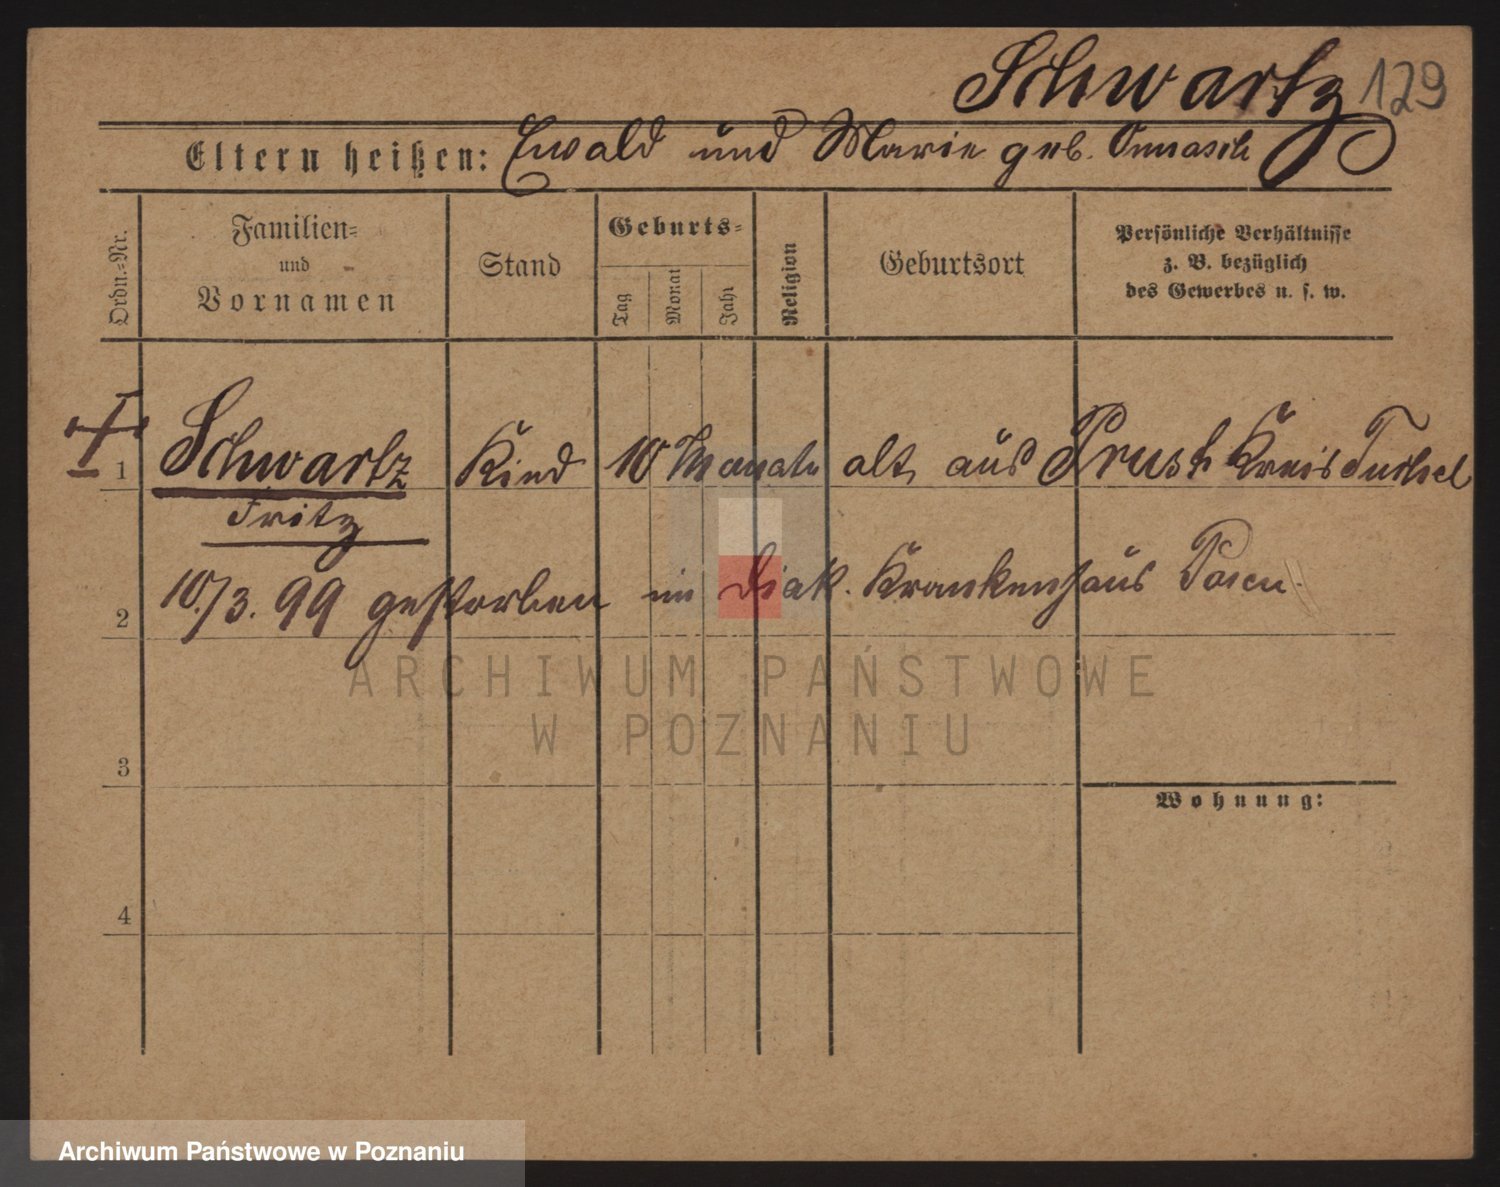 Schwartz 129
Eltern heißen: Ewald und Marie geb. Onnasch
Ordn.=Nr.
Familien=
und
Vornamen
Stand
Geburts=
Tag
Monat
Jahr
Religion
Geburtsort
Persönliche Verhältnisse
z. B. bezüglich
des Gewerbes u. s. w.
1 Schwartz Kind 10 Monate alt, aus Prust Kreis Tuchel
Fritz
2 10./3. 99 gestorben im Diak. Krankenhaus Posen.
ARCHIWUM PAŃSTWOWE
W POZNANIU
3
Wohnung:
4
Archiwum Państwowe w Poznaniu